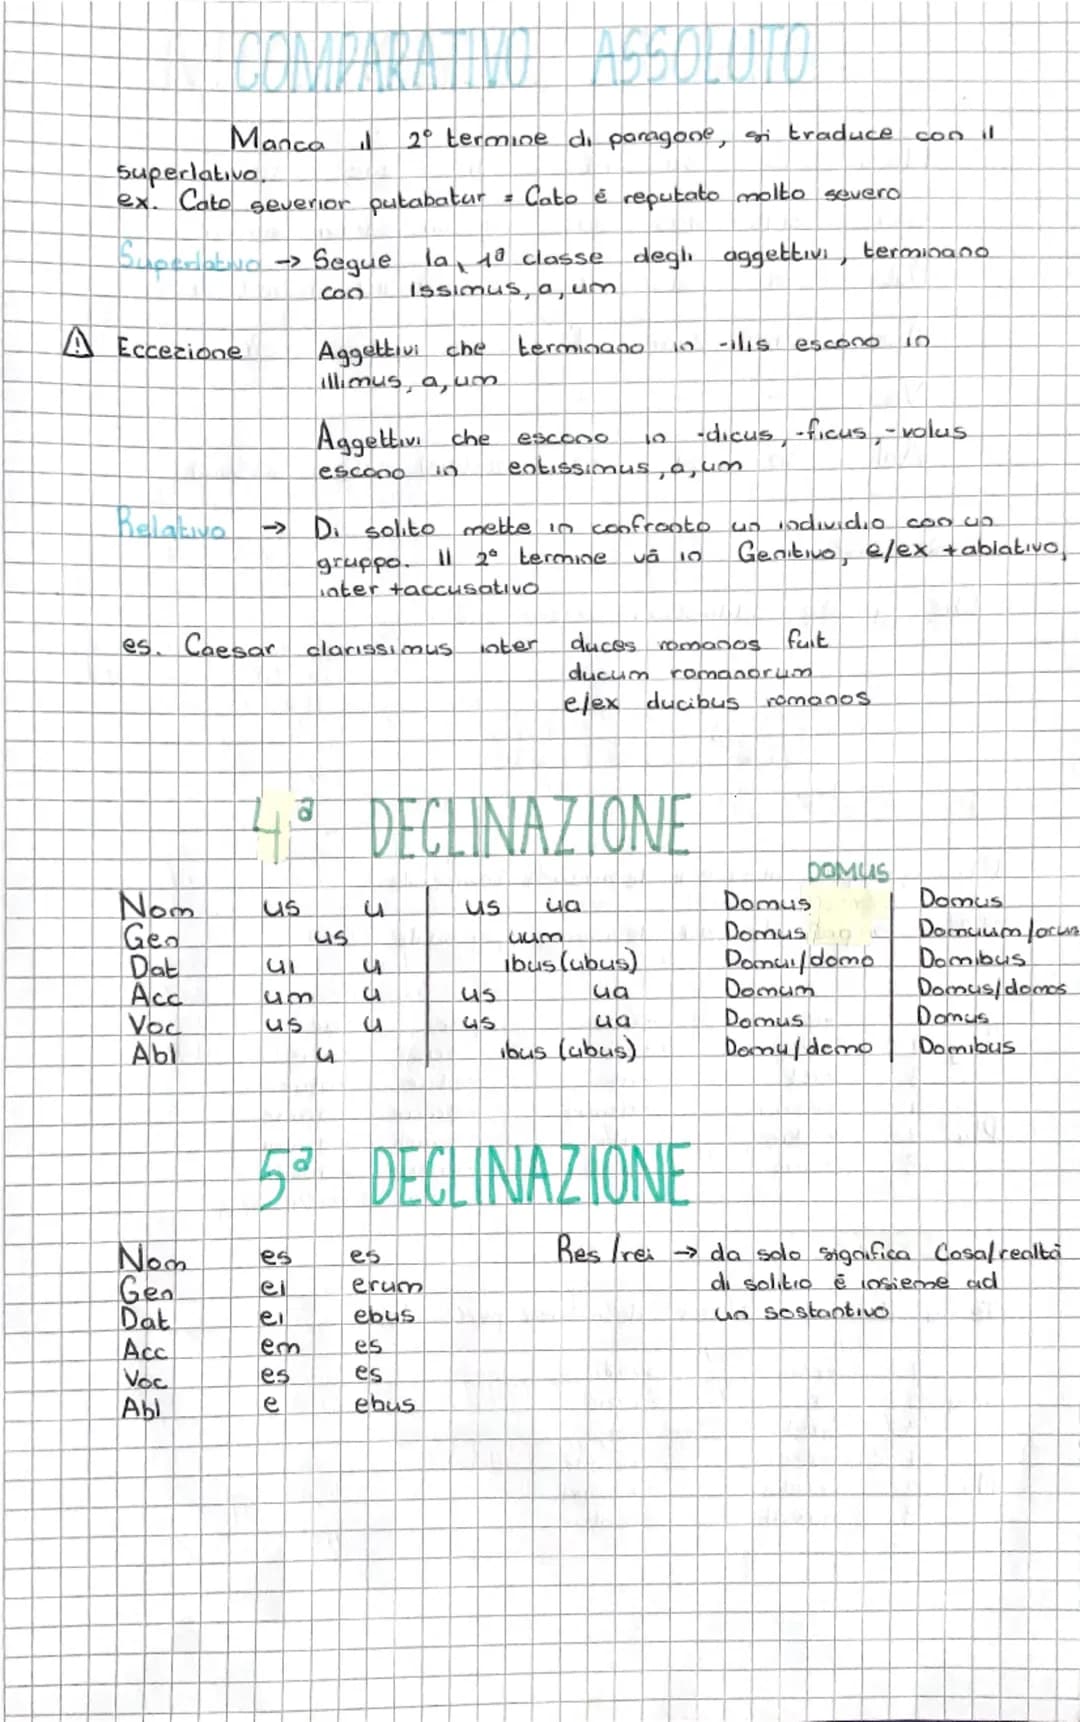 COMPARATIVO ASSOLUTO
Manca il 2° termine di paragone, si traduce con il
superlativo.
ex. Cato severior putabatur = Cato é reputato molto severo
Superlativo → Segue la 1ª classe degli aggettivi, terminano
con issimus, a, um
⚠ Eccezione Aggettivi che terminano in -ilis escono in
illimus, a, um
Aggettivi che escono in -dicus, -ficus, -volus
escono in entissimus, a, um
Relativo → Di solito mette in confronto un individio con un
gruppo. Il 2° termine vā in Genitivo, e/ex +ablativo,
inter +accusativo
es. Caesar clarissimus inter duces romanos fuit
ducum romanorum
e/ex ducibus romanos
4ª DECLINAZIONE
DOMUS
Nom us u us ua Domus Domus
Gen us uum Domus Domuum/orum
Dat ui u ibus (ubus) Domui/domo Domibus
Acc um u us ua Domum Domus/domos
Voc us u us ua Domus Domus
Abl u ibus (ubus) Domu/domo Domibus
5ª DECLINAZIONE
Nom es es Res/rei → da solo significa Cosa/realtà
Gen ei erum di solitio é insieme ad
Dat ei ebus un sostantivo
Acc em es
Voc es es
Abl e ebus